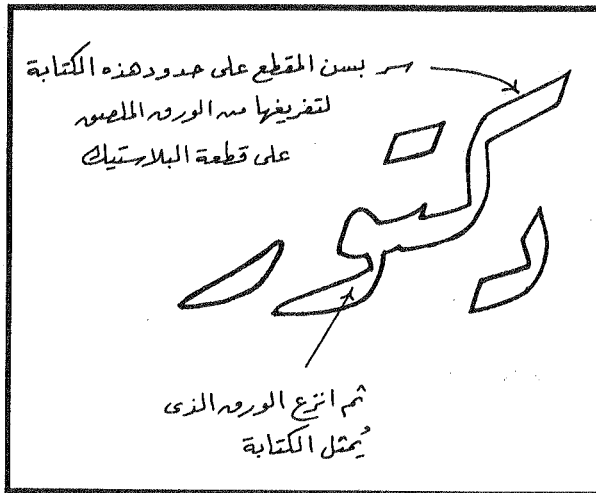 سر بسن المقطع على حدود هذه الكتابة
لتفريغها من الورق الملصق
على قطعة البلاستيك
دكتور
ثم انزع الورق الذى
يُمثل الكتابة